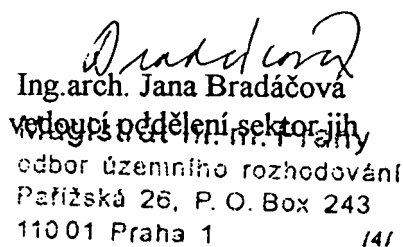 Bradáčová
Ing.arch. Jana Bradáčová
vedoucí oddělení sektor jih
Magistrát hl. m. Prahy
odbor územního rozhodování
Pařížská 26, P. O. Box 243
110 01 Praha 1 /4/